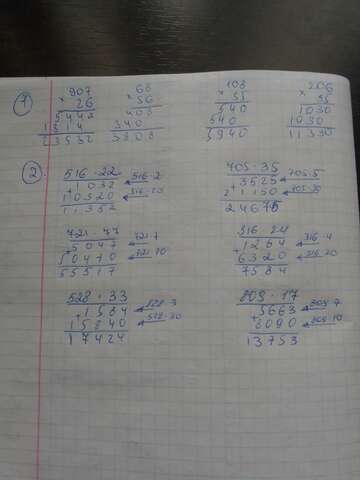 1
907
× 26
5442
1814
23582
68
× 56
408
340
3808
108
× 55
540
540
5940
206
× 55
1030
1030
11330
2
516 · 22
+ 1032 516·2
10320 516·20
11352
705 · 35
+ 3525 705·5
21150 705·30
24675
721 · 77
+ 5047 721·7
50470 721·70
55517
316 · 24
+ 1264 316·4
6320 316·20
7584
528 · 33
+ 1584 528·3
15840 528·30
17424
809 · 17
+ 5663 809·7
8090 809·10
13753